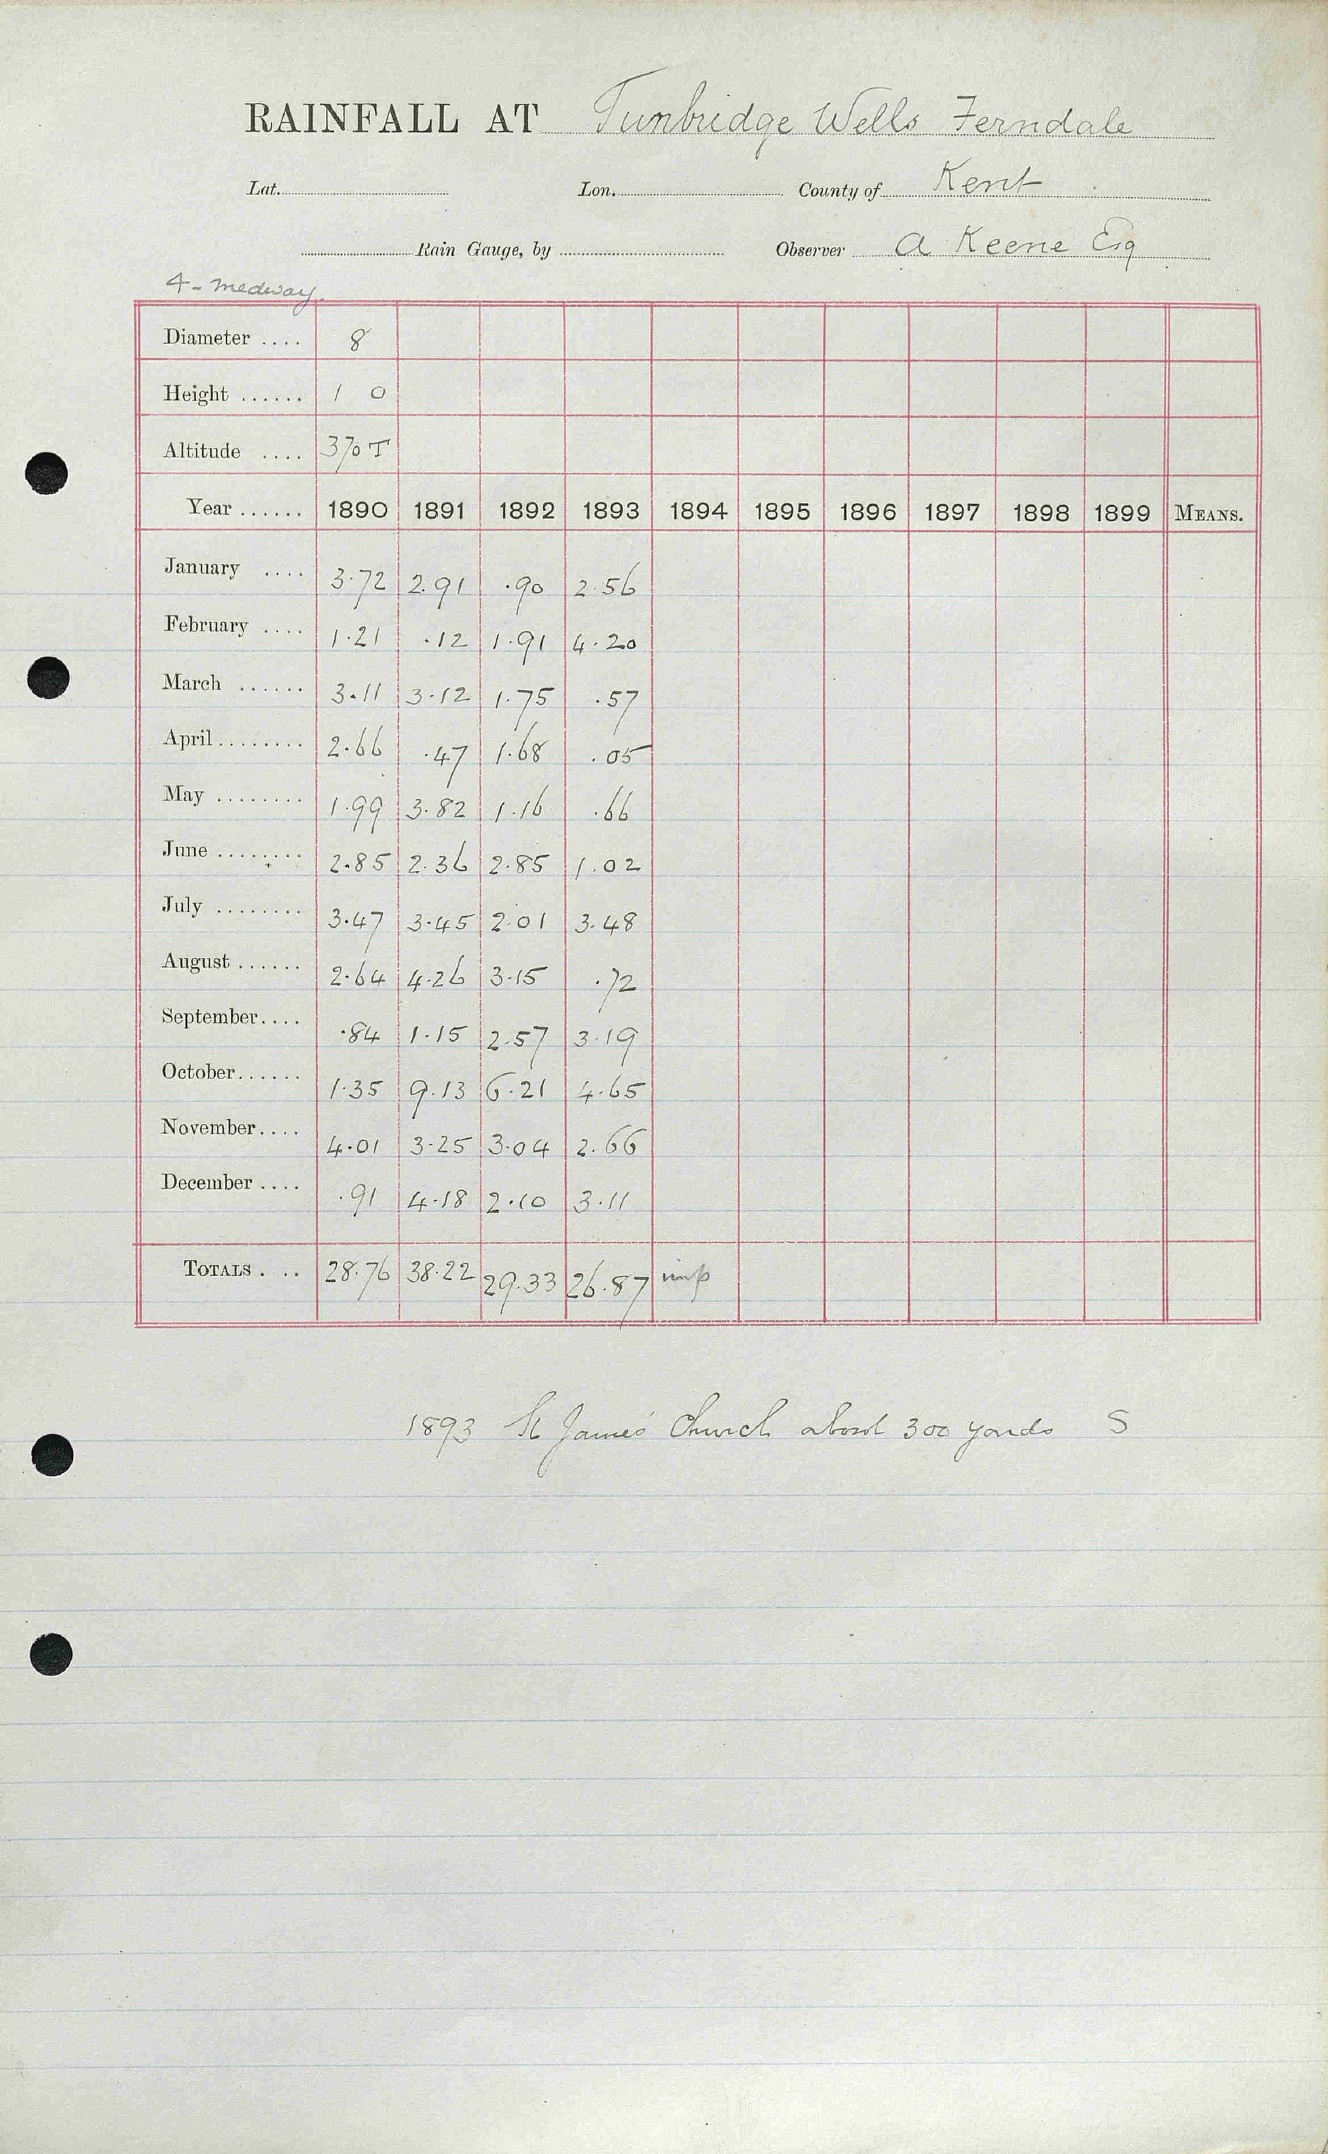 RAINFALL AT Tunbridge Wells Ferndale
Lat. Lon. County of Kent
Rain Gauge, by Observer A Keene Esq
4 - Medway
Diameter .... 8
Height ...... 1 0
Altitude .... 370 T
Year ...... 1890 1891 1892 1893 1894 1895 1896 1897 1898 1899 MEANS.
January .... 3.72 2.91 .90 2.56
February .... 1.21 .12 1.91 4.20
March ...... 3.11 3.12 1.75 .57
April ........ 2.66 .47 1.68 .05
May ........ 1.99 3.82 1.16 .66
June ........ 2.85 2.36 2.85 1.02
July ........ 3.47 3.45 2.01 3.48
August ...... 2.64 4.26 3.15 .72
September.... .84 1.15 2.57 3.19
October...... 1.35 9.13 6.21 4.65
November.... 4.01 3.25 3.04 2.66
December .... .91 4.18 2.10 3.11
TOTALS . .. 28.76 38.22 29.33 26.87 imp
1893 St James' Church about 300 yards S